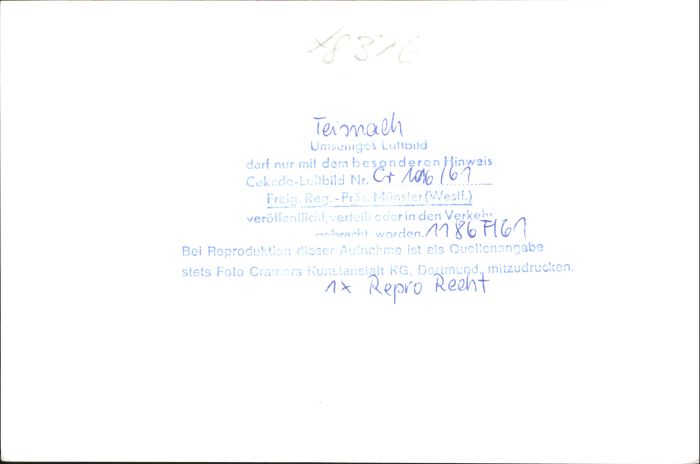 Teisnach
Umseitiges Luftbild
darf nur mit dem besonderen Hinweis
Cekade-Luftbild Nr. Cr 1016/61
Freig. Reg.-Präs. Münster (Westf.)
veröffentlicht, verteilt oder in den Verkehr
gebracht werden. 1186 F/61
Bei Reproduktion dieser Aufnahme ist als Quellenangabe
stets Foto Cramers Kunstanstalt KG, Dortmund, mitzudrucken.
1x Repro Recht